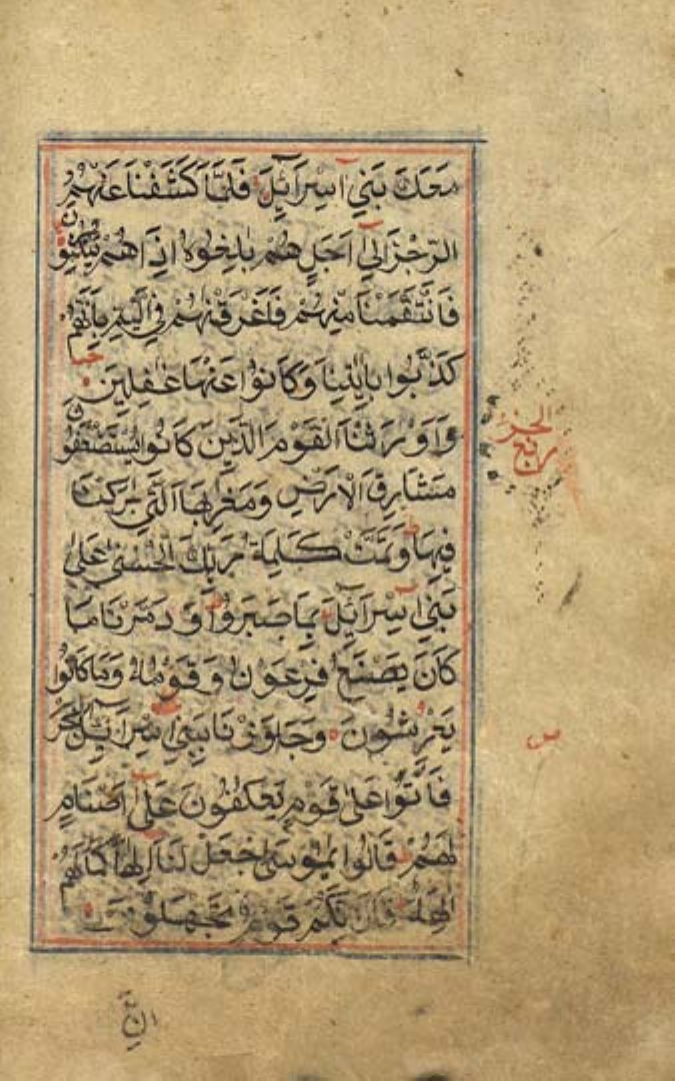 مَعَكَ بَنِي اِسْرَآئِيلَ فَلَمَّا كَشَفْنَا عَنْهُمُ
الرِّجْزَ اِلٰى اَجَلٍ هُمْ بٰلِغُوهُ اِذَا هُمْ يَنْكُثُونَ
فَانْتَقَمْنَا مِنْهُمْ فَاَغْرَقْنٰهُمْ فِي الْيَمِّ بِاَنَّهُمْ
كَذَّبُوا بِاٰيٰتِنَا وَكَانُوا عَنْهَا غٰفِلِينَ
وَاَوْرَثْنَا الْقَوْمَ الَّذِينَ كَانُوا يُسْتَضْعَفُونَ
مَشَارِقَ الْاَرْضِ وَمَغَارِبَهَا الَّتِي بٰرَكْنَا
فِيهَا وَتَمَّتْ كَلِمَةُ رَبِّكَ الْحُسْنٰى عَلٰى
بَنِي اِسْرَآئِيلَ بِمَا صَبَرُوا وَدَمَّرْنَا مَا
كَانَ يَصْنَعُ فِرْعَوْنُ وَقَوْمُهُ وَمَا كَانُوا
يَعْرِشُونَ وَجٰوَزْنَا بِبَنِي اِسْرَآئِيلَ الْبَحْرَ
فَاَتَوْا عَلٰى قَوْمٍ يَعْكُفُونَ عَلٰى اَصْنَامٍ
لَهُمْ قَالُوا يٰمُوسَى اجْعَلْ لَنَا اِلٰهًا كَمَا لَهُمْ
اٰلِهَةٌ قَالَ اِنَّكُمْ قَوْمٌ تَجْهَلُونَ
ربع
الحزب
اِنَّ